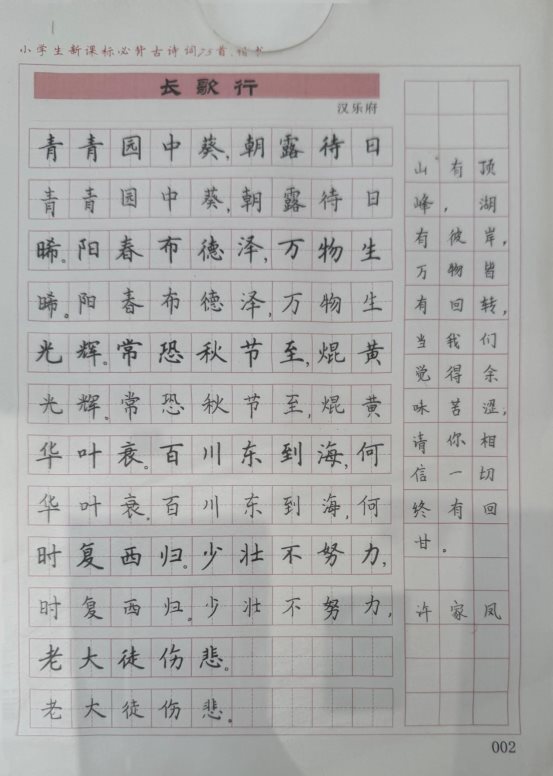 小学生新课标必背古诗词75首.楷书
长歌行
汉乐府
青青园中葵,朝露待日
青青园中葵,朝露待日
晞。阳春布德泽,万物生
晞。阳春布德泽,万物生
光辉。常恐秋节至,焜黄
光辉。常恐秋节至,焜黄
华叶衰。百川东到海,何
华叶衰。百川东到海,何
时复西归。少壮不努力,
时复西归。少壮不努力,
老大徒伤悲。
老大徒伤悲。
山有顶
峰,湖
有彼岸,
万物皆
有回转,
当我们
觉得余
味苦涩,
请你相
信一切
终有回
甘。
许家凤
002